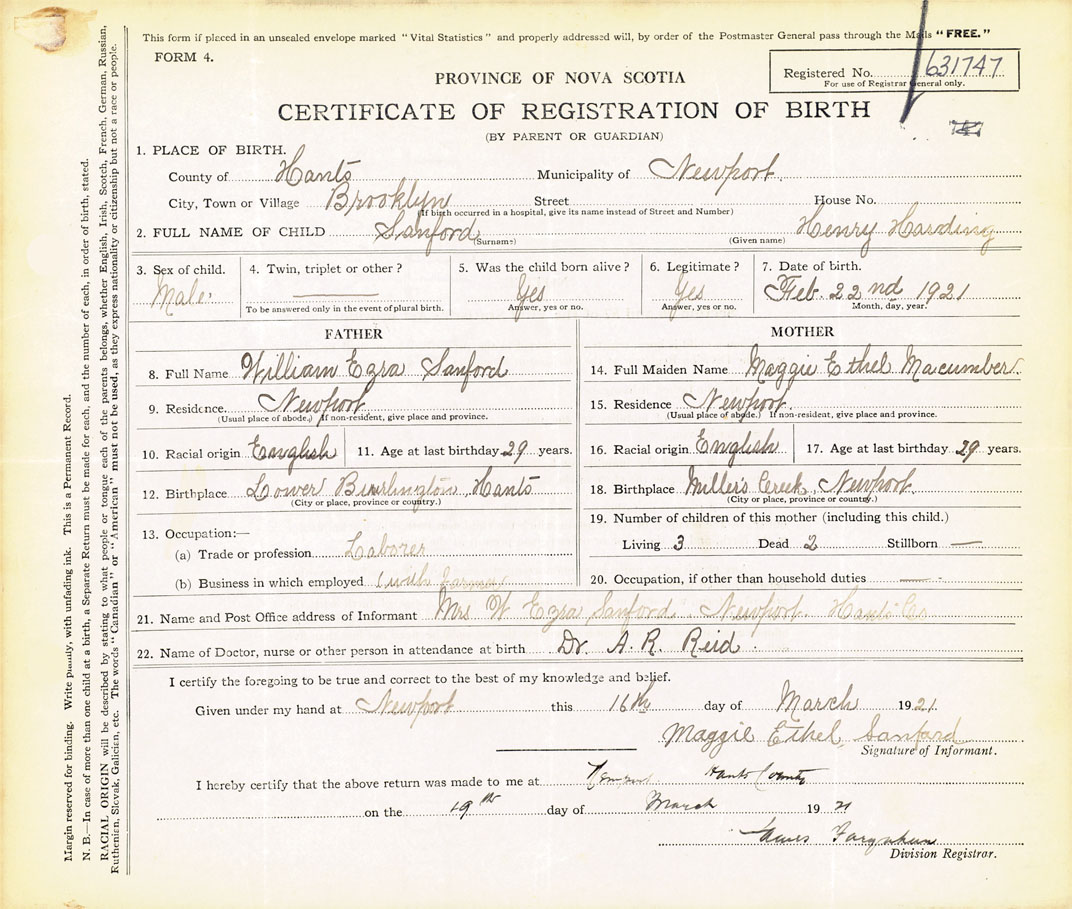 This form if placed in an unsealed envelope marked "Vital Statistics" and properly addressed will, by order of the Postmaster General pass through the Mails "FREE."
FORM 4.
Registered No. 631747
For use of Registrar General only.
PROVINCE OF NOVA SCOTIA
CERTIFICATE OF REGISTRATION OF BIRTH
(BY PARENT OR GUARDIAN)
1. PLACE OF BIRTH.
County of Hants Municipality of Newport
City, Town or Village Brooklyn Street House No.
(If birth occurred in a hospital, give its name instead of Street and Number)
2. FULL NAME OF CHILD Sanford Henry Harding
(Surname) (Given name)
3. Sex of child. 4. Twin, triplet or other? 5. Was the child born alive? 6. Legitimate? 7. Date of birth.
Male Yes Yes Feb. 22nd 1921
To be answered only in the event of plural birth. Answer, yes or no. Answer, yes or no. Month, day, year.
FATHER
8. Full Name William Ezra Sanford
9. Residence. Newport
(Usual place of abode.) If non-resident, give place and province.
10. Racial origin English 11. Age at last birthday 29 years.
12. Birthplace Lower Burlington Hants
(City or place, province or country.)
13. Occupation:—
(a) Trade or profession Laborer
(b) Business in which employed (with
MOTHER
14. Full Maiden Name Maggie Ethel Macumber
15. Residence Newport
(Usual place of abode.) If non-resident, give place and province.
16. Racial origin English 17. Age at last birthday 29 years.
18. Birthplace Miller's Creek, Newport
(City or place, province or country.)
19. Number of children of this mother (including this child.)
Living 3 Dead 2 Stillborn —
20. Occupation, if other than household duties —
21. Name and Post Office address of Informant Mrs W Ezra Sanford. Newport Hants Co
22. Name of Doctor, nurse or other person in attendance at birth Dr. A. R. Reid
I certify the foregoing to be true and correct to the best of my knowledge and belief.
Given under my hand at Newport this 16th day of March 1921
Maggie Ethel Sanford
Signature of Informant.
I hereby certify that the above return was made to me at Newport Hants County
on the 19th day of March 1921
James
Division Registrar.
Margin reserved for binding. Write plainly, with unfading ink. This is a Permanent Record.
N. B.—In case of more than one child at a birth, a Separate Return must be made for each, and the number of each, in order of birth, stated.
RACIAL ORIGIN will be described by stating to what people or tongue each of the parents belongs, whether English, Irish, Scotch, French, German, Russian,
Ruthenian, Slovak, Galician, etc. The words "Canadian" or "American" must not be used, as they express nationality or citizenship but not a race or people.